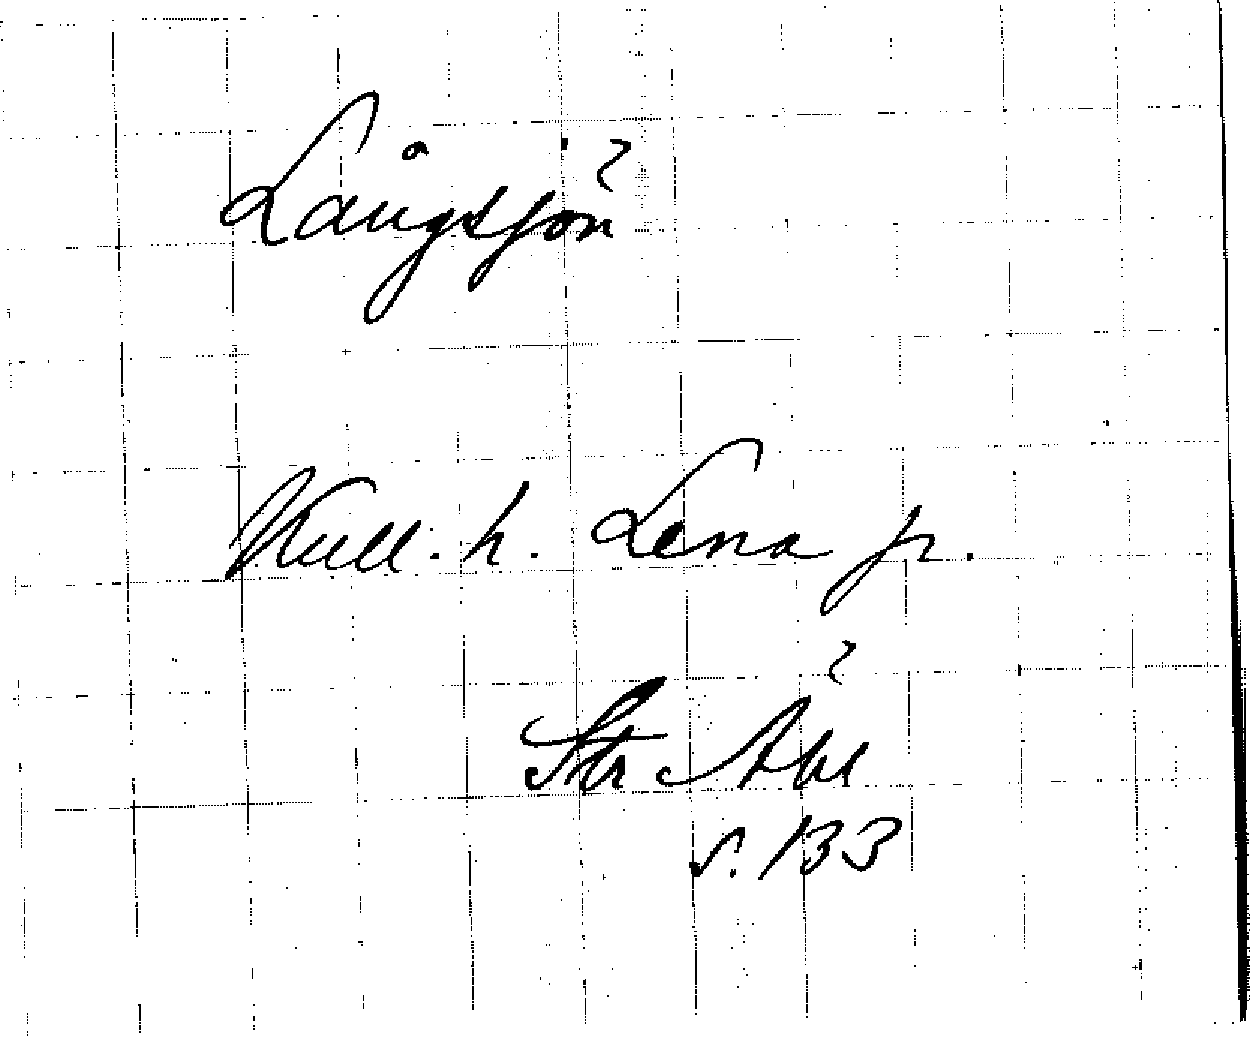 Långsjön
Kull. h. Lena sn.
Str Åbl
s. 133